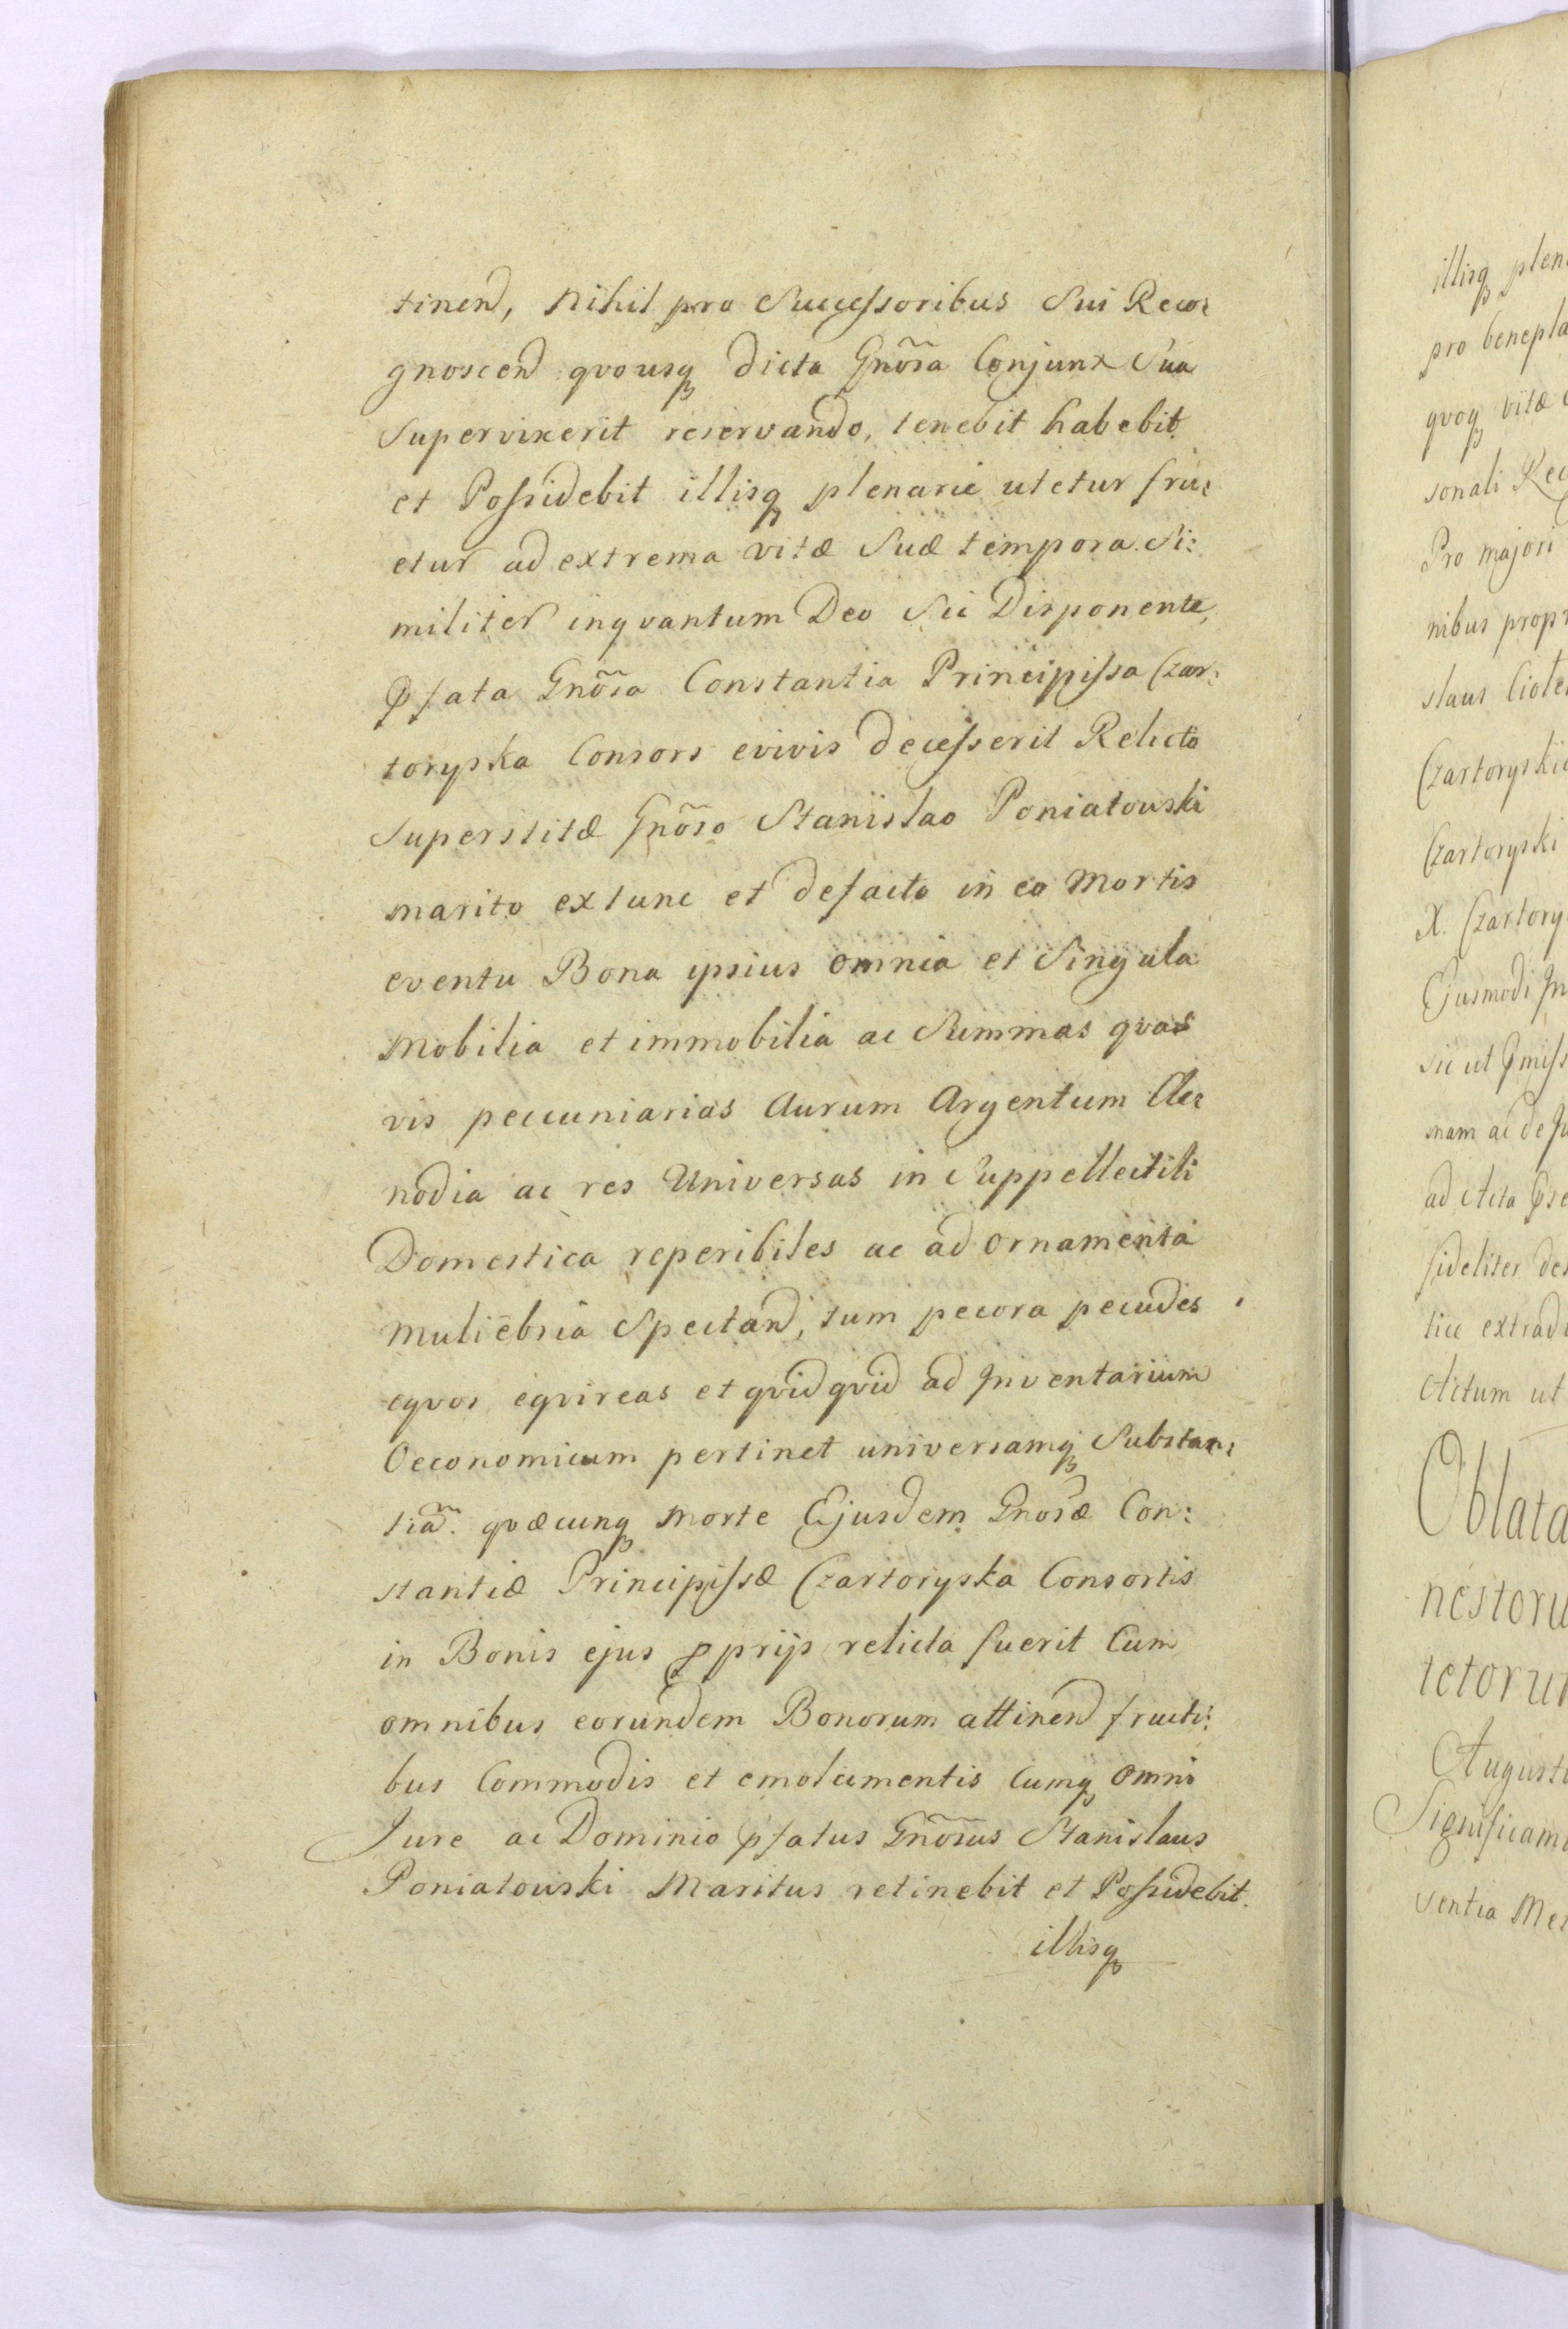 tinend, Nihil pro Successoribus Sui Reco:
gnoscend qvousq dicta Gnõsa Conjunx Sua
Supervixerit reservando, tenebit habebit
et Possidebit illisq plenarie utetur fru:
etur ad extrema vitæ Suæ tempora. Si:
militer inqvantum Deo Sic Disponente,
Pfata Gnõsa Constantia Principissa Czar:
toryska Consors evivis decesserit Relicto
Superstitæ Gnõso Stanislao Poniatowski
marito extunc et defacto in eo Mortis
eventu Bona ipsius omnia et Singula
Mobilia et immobilia ac Summas qvas
vis peccuniarias Aurum Argentum Cle:
nodia ac res Universas in Suppellectili
Domestica reperibiles ac ad ornamenta
Muliebria Spectand, tum pecora pecudes
eqvos eqvireas et qvidqvid ad Inventarium
Oeconomicum pertinet universamq Substan:
tiã. qvæcunq morte Ejusdem Gnosæ Con:
stantiæ Principissæ Czartoryska Consortis
in Bonis ejus pprijs relicta fuerit Cum
omnibus eorundem Bonorum attinend fructi:
bus Commodis et emolumentis Cumq omni
Jure ac Dominio pfatus Gnõsus Stanislaus
Poniatowski Maritus retinebit et Possidebit.
illisq
illisq plen
pro benepla
qvoq vitæ
sonali Rec
Pro majori
nibus propr
slaus Ciole
Czartoryski
Czartoryski
X. Czartory
Ejusmodi In
sic ut pmiss
nam ac de Ju
ad Acta pse
fideliter des
tice extrad
Actum ut
Oblata
nestoru
tetorum
August
Significam
sentia Me